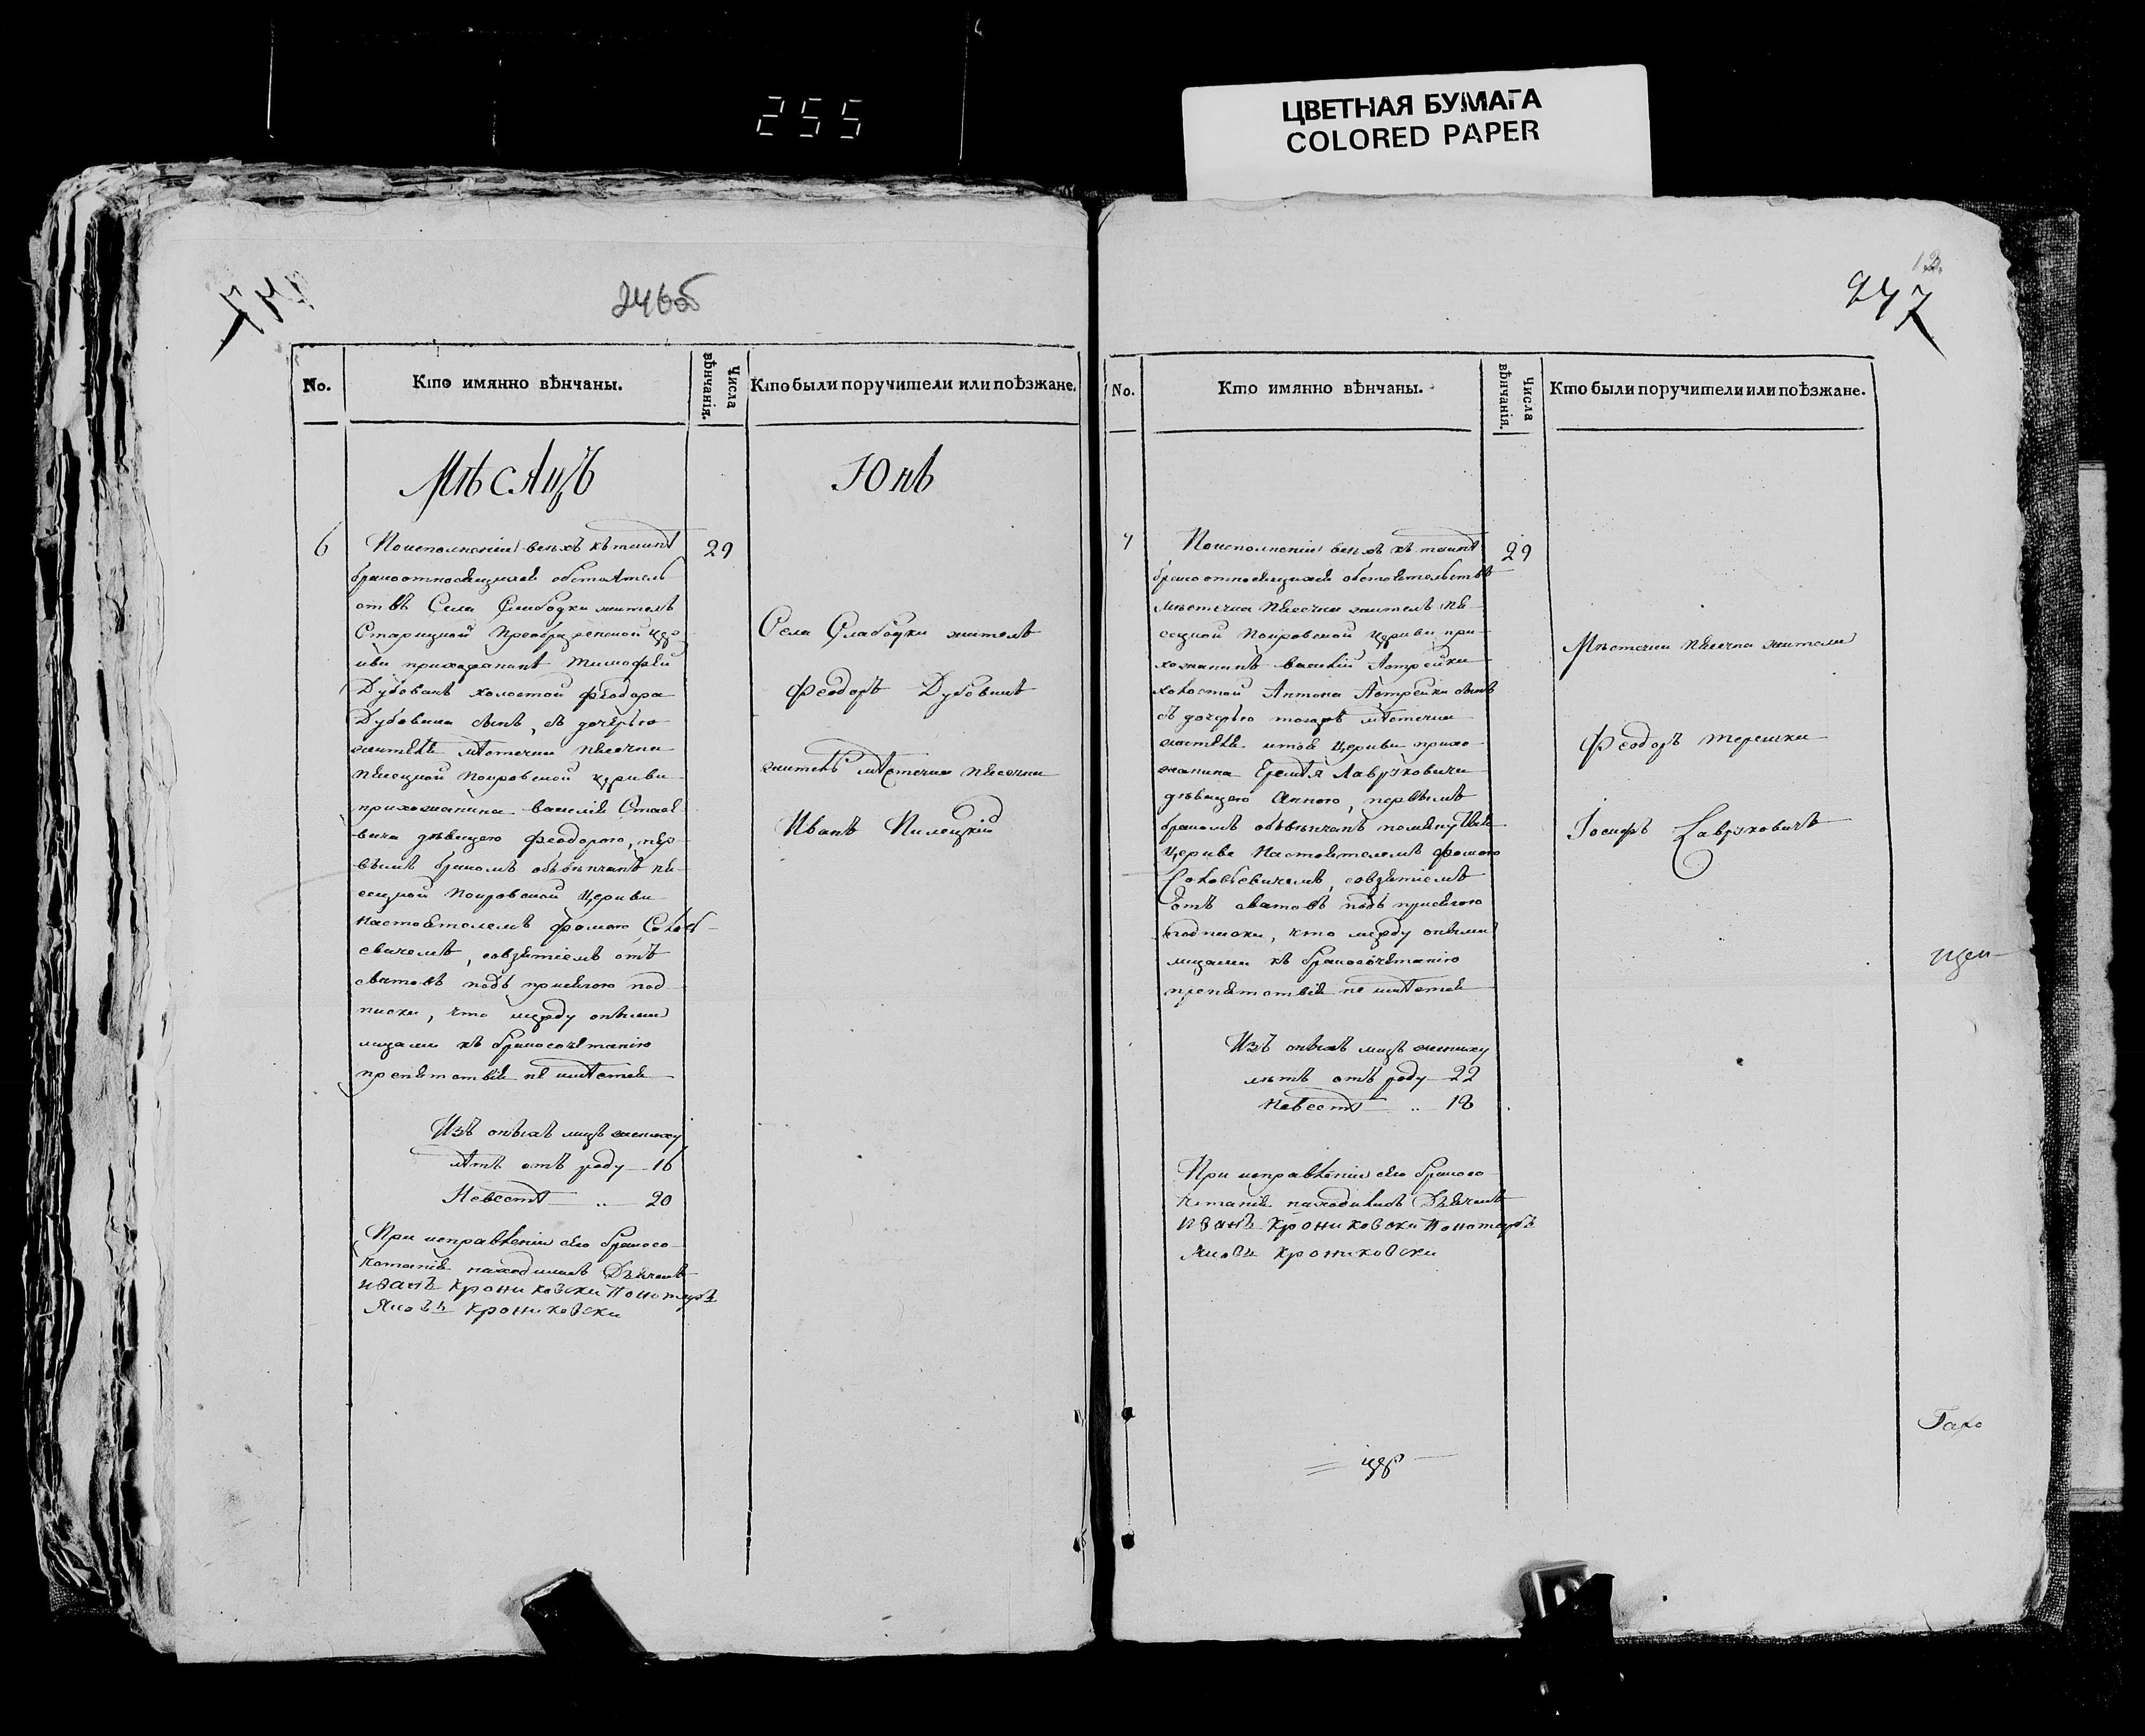 255
ЦВЕТНАЯ БУМАГА
COLORED PAPER
246об
No.
Кто имянно вѣнчаны.
Числа вѣнчанія.
Кто были поручители или поѣзжане.
Мѣсяцъ
Юнь
6
29
По исполненіи всѣхъ къ таинѣ
брака относящихся обстоятель
ствъ Села Слабодки житель
Старицкой Преображенской цер
кви прихожанинъ Тимофей
Дубовикъ холостой Феодора
Дубовика сынъ, съ дочерью
жителя мѣстечка Пясечна
Пясецкой Покровской церкви
прихожанина Василія Стась
вича дѣвицею Феодорою, пер
вымъ бракомъ обвѣнчанъ Пя
сецкой Покровской Церкви
Настоятелемъ Фомою Соловь
евичемъ, со взятіемъ отъ
сватовъ подъ присягою под
писки, что между оными
лицами къ бракосочетанію
препятствій не имѣется
Изъ оныхъ лицъ жениху
лѣтъ отъ роду 16
Невестѣ „ 20
При исправленіи сего бракосо
четанія находились Дьячекъ
Иванъ Крониковски Пономарь
Яковъ Крониковски
Села Слабодки житель
Феодоръ Дубовикъ
житель мѣстечка Пясечна
Иванъ Пилецкій
247
No.
Кто имянно вѣнчаны.
Числа вѣнчанія.
Кто были поручители или поѣзжане.
7
29
По исполненіи всѣхъ къ таинѣ
брака относящихся обстоятельствъ
мѣстечка Пясечна житель Пя
сецкой Покровской церкви при
хожанинъ Василій Астрейко
холостой Антона Астрейки сынъ
съ дочерью тогожъ мѣстечка
жителя и той Церкви прихо
жанина Еремѣя Лавруковича
дѣвицею Анною, первымъ
бракомъ обвѣнчанъ помянутой
Церкви Настоятелемъ Фомою
Соловьевичемъ, со взятіемъ
отъ сватовъ подъ присягою
подписки, что между оными
лицами къ бракосочетанію
препятствій не имѣется
Изъ оныхъ лицъ жениху
лѣтъ отъ роду 22
Невестѣ „ 18
При исправленіи сего бракосо
четанія находились Дьячекъ
Иванъ Крониковски Пономарь
Яковъ Крониковски
Мѣстечка Пясечна жители
Феодоръ Терешки
Іосифъ Лавруковичъ